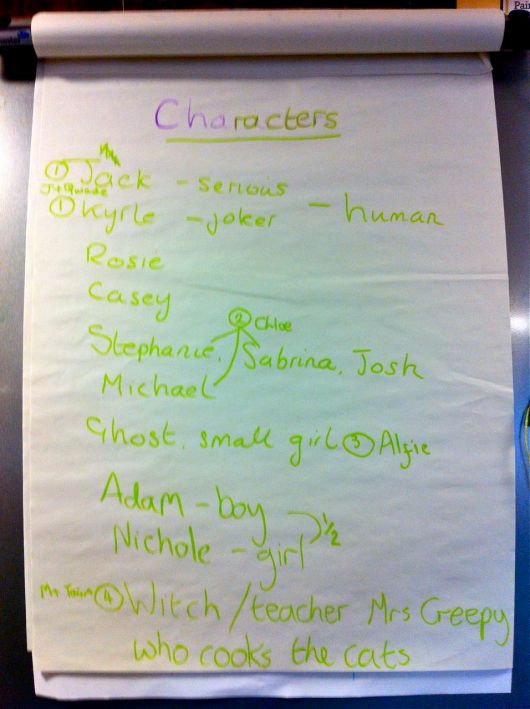 Characters
① Jack - serious
① Kyrle - joker - human
Rosie
Casey
② Chloe
Stephanie, Sabrina, Josh
Michael
Ghost, small girl ③ Alfie
Adam - boy
1/2
Nichole - girl
④ Witch/teacher Mrs Creepy
who cooks the cats